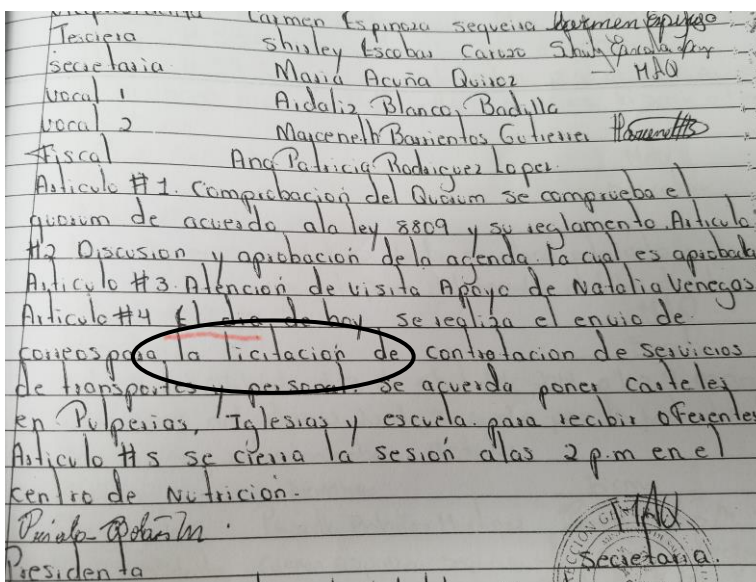 Carmen Espinoza sequeira
Tesorera Shirley Escobar Caruzo
secretaria Maria Acuña Quiroz MAQ
vocal 1 Aidaliz Blanco, Badilla
vocal 2 Marceneth Barrientos Gutierrez
Fiscal Ana Patricia Rodriguez Lopez.
Articulo #1. Comprobacion del Quorum se comprueba el
quorum de acuerdo ala ley 8809 y su reglamento. Articulo
#2 Discusion y aprobacion de la agenda. la cual es aprobada
Articulo #3. Atención de visita Apoyo de Natalia Venegas
Articulo #4 El dia de hoy se realiza el envio de
correos para la licitación de contratacion de servicios
de transportes y personal. se acuerda poner carteles
en Pulperias, Iglesias y escuela para recibir oferentes
Articulo #5 se cierra la sesión alas 2 p.m en el
centro de Nutrición.
MAQ
Presidenta Secretaria.